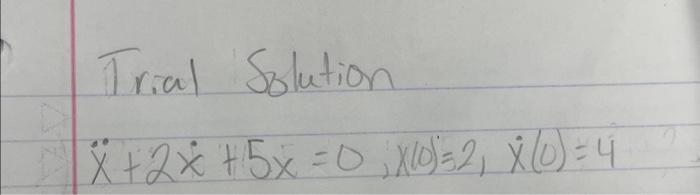 Trial Solution
ẍ + 2ẋ + 5x = 0, x(0) = 2, ẋ(0) = 4